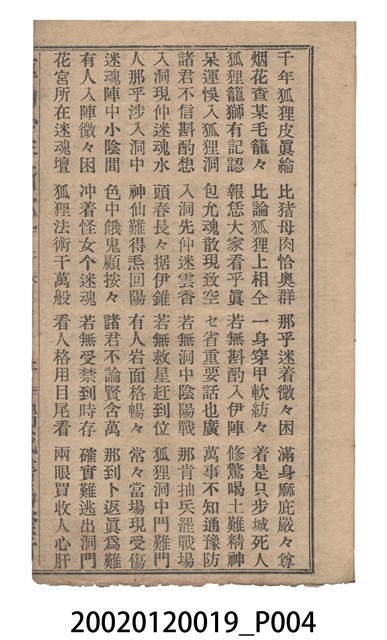 千年狐狸皮真綸 比猪母肉恰奥群 那乎迷着微々困 滿身麻庇嚴々尊
烟花查某毛籠々 比論狐狸上相仝 一身穿甲軟紡々 着是只步城死人
狐狸籠獅有記認 報恁大家看乎真 若無斟酌入伊陣 修驚喝土難精神
呆運悞入狐狸洞 包允魂散現致空 七省重要話也廣 萬事不知通豫防
諸君不信斟酌想 入洞先仲迷雲香 若無洞中陰陽戰 那肯抽兵罷戰場
入洞現仲迷魂水 頭春長々据伊錐 若無救星赶到位 狐狸洞中門難門
人那乎涉入洞中 神仙難得炁回陽 有人岩面格暢々 常々當場現受傷
迷魂陣中小陰間 色中餓鬼顧按々 諸君不論賢含萬 那到卜返真為難
有人入陣微々困 冲着怪女个迷魂 若無受禁到時存 確實難逃出洞門
花宮所在迷魂壇 狐狸法術千萬般 看人格用目尾看 兩眼買收人心肝
20020120019_P004